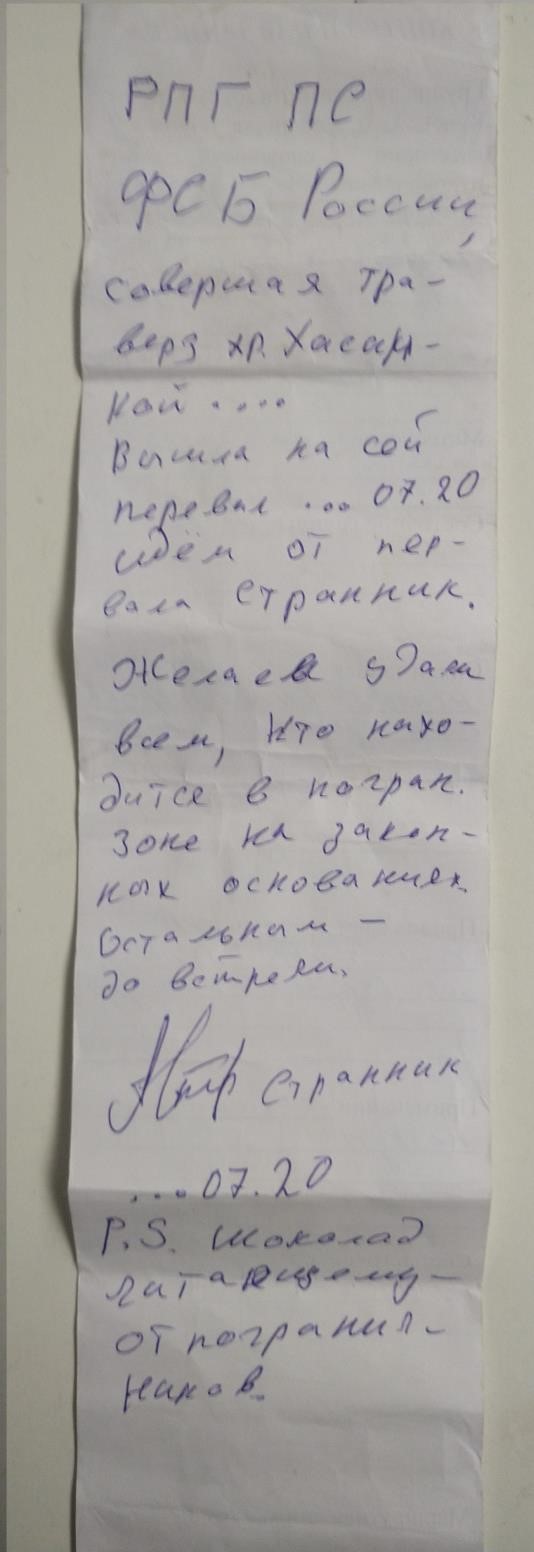 РПГ ПС
ФСБ России,
совершая тра-
верз хр. Хасан-
кой ....
Вышла на сой
перевал ... 07.20
идём от пер-
вала Странник.
Желаем удачи
всем, кто нахо-
дится в погран.
зоне на закон-
ных основаниях.
Остальным –
до встречи.
Странник
...07.20
P.S. Шоколад
читающему –
от погранич-
ников.